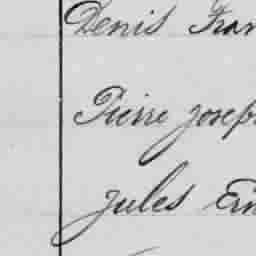 Denis Fran
Pierre Joseph
Jules Ern